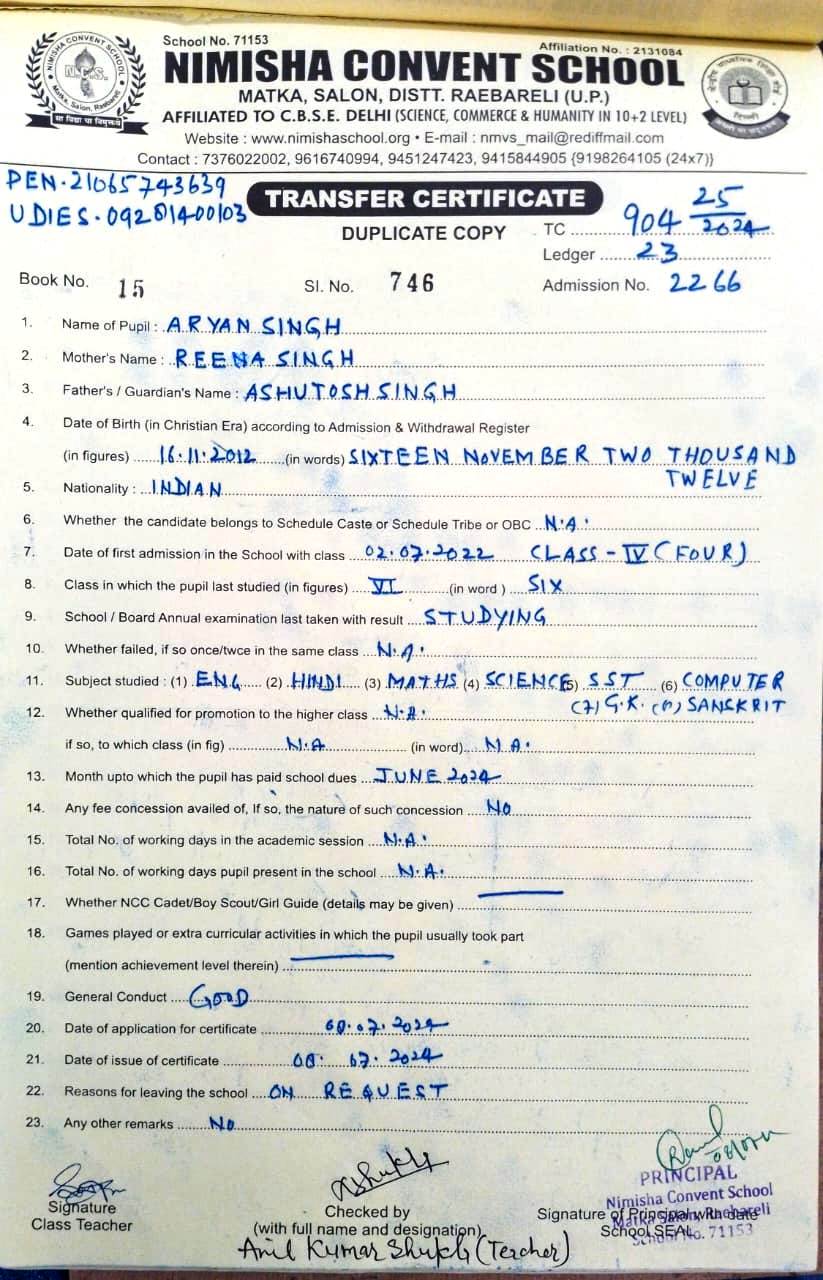 School No. 71153
Affiliation No. : 2131084
NIMISHA CONVENT SCHOOL
MATKA, SALON, DISTT. RAEBARELI (U.P.)
AFFILIATED TO C.B.S.E. DELHI (SCIENCE, COMMERCE & HUMANITY IN 10+2 LEVEL)
Website : www.nimishaschool.org • E-mail : nmvs_mail@rediffmail.com
Contact : 7376022002, 9616740994, 9451247423, 9415844905 {9198264105 (24x7)}
NIMISHA CONVENT SCHOOL
N.C.S.
Matka, Salon, Raebareli
सा विद्या या विमुक्तये
PEN. 21065743639
UDIES. 09281400103
TRANSFER CERTIFICATE
DUPLICATE COPY
TC 904 25/2024
Ledger 23
Book No. 15 Sl. No. 746 Admission No. 2266
1. Name of Pupil : ARYAN SINGH
2. Mother's Name : REENA SINGH
3. Father's / Guardian's Name : ASHUTOSH SINGH
4. Date of Birth (in Christian Era) according to Admission & Withdrawal Register
(in figures) 16.11.2012 (in words) SIXTEEN NOVEMBER TWO THOUSAND
TWELVE
5. Nationality : INDIAN
6. Whether the candidate belongs to Schedule Caste or Schedule Tribe or OBC N.A.
7. Date of first admission in the School with class 02.07.2022 CLASS - IV (FOUR)
8. Class in which the pupil last studied (in figures) VI (in word ) SIX
9. School / Board Annual examination last taken with result STUDYING
10. Whether failed, if so once/twce in the same class N.A.
11. Subject studied : (1) ENG (2) HINDI (3) MATHS (4) SCIENCE (5) SST (6) COMPUTER
(7) G.K. (8) SANSKRIT
12. Whether qualified for promotion to the higher class N.A.
if so, to which class (in fig) N.A (in word) N.A.
13. Month upto which the pupil has paid school dues JUNE 2024
14. Any fee concession availed of, If so, the nature of such concession NO
15. Total No. of working days in the academic session N.A.
16. Total No. of working days pupil present in the school N.A.
17. Whether NCC Cadet/Boy Scout/Girl Guide (details may be given)
18. Games played or extra curricular activities in which the pupil usually took part
(mention achievement level therein)
19. General Conduct GOOD
20. Date of application for certificate 08.07.2024
21. Date of issue of certificate 08. 07. 2024
22. Reasons for leaving the school ON REQUEST
23. Any other remarks NO
PRINCIPAL
Nimisha Convent School
Matka Salon, Raebareli
School No. 71153
Signature
Class Teacher
Checked by
(with full name and designation)
Signature of Principal with date
School SEAL
Anil Kumar Shukla (Teacher)